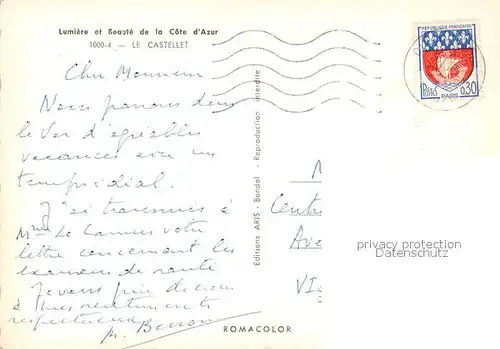 Lumière et Beauté de la Côte d'Azur
1000-4 — LE CASTELLET
REPUBLIQUE FRANÇAISE
POSTES
0,30
PARIS
Cher Monsieur
Nous passons dans
le Var d'agréables
vacances avec un
temps idéal.
J'ai transmis à
Mme Le Camus votre
lettre concernant les
examens de santé
Je vous prie de croire
à mes sentiments
respectueux
Editions ARIS - Bandol - Reproduction interdite
Centr
Ave
VI
privacy protection
Datenschutz
ROMACOLOR